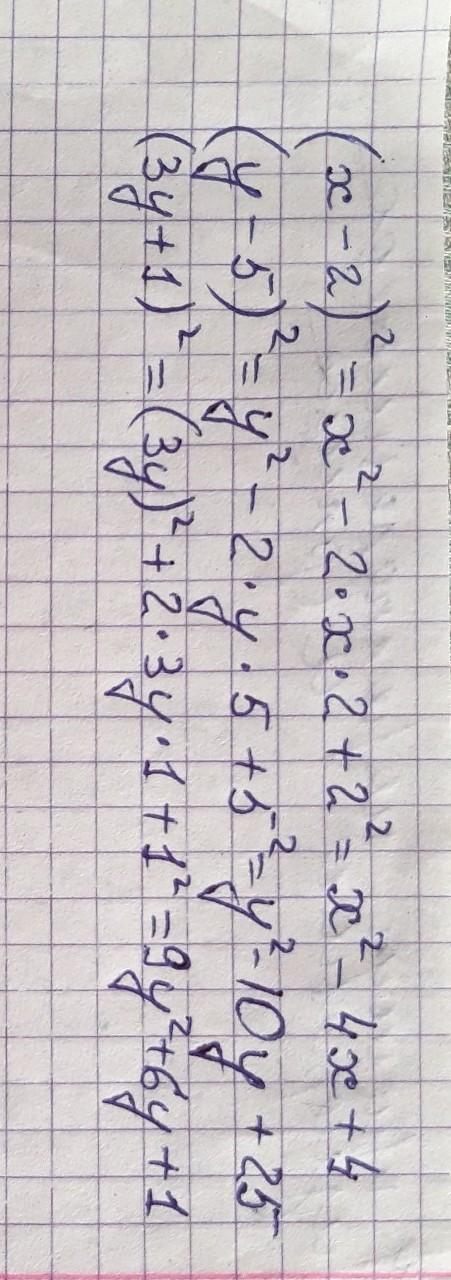 (x - 2)² = x² - 2·x·2 + 2² = x² - 4x + 4
(y - 5)² = y² - 2·y·5 + 5² = y² - 10y + 25
(3y + 1)² = (3y)² + 2·3y·1 + 1² = 9y² + 6y + 1